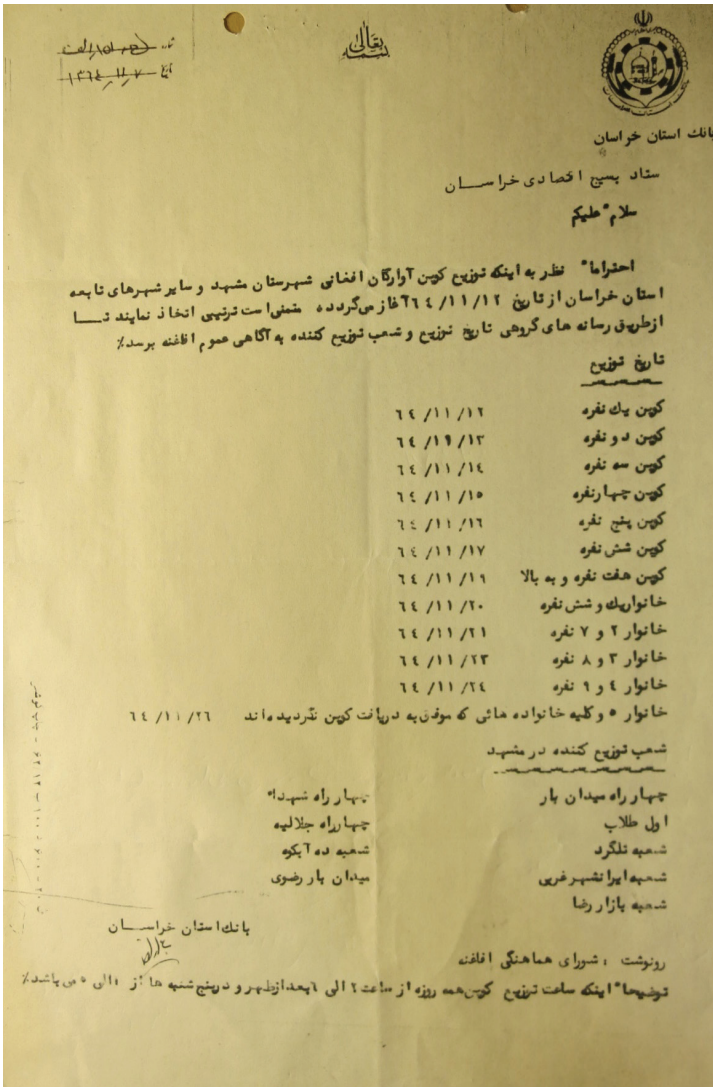 بسمه تعالی
تاریخ ۱۳۶۴٫۱۱٫۷
بانك استان خراسان
ستاد بسیج اقصادی خراســان
سلام" علیکم
احتراما" نظر به اینکه توزیع کوپن آوارگان افغانی شهرستان مشهد و سایر شهرهای تابعه
استان خراسان از تاریخ ٦٤/١١/١٢ آغاز میگردده متمنی است ترتیبی اتخاذ نمایند تــا
ازطریق رسانه های گروهی تاریخ توزیع و شعب توزیع کننده به آگاهی عموم افاغنه برسد٪
تاریخ توزیع
کوپن یك نفره ٦٤/١١/١٢
کوپن دو نفره ٦٤/١٩/١٣
کوپن سه نفره ٦٤/١١/١٤
کوپن چهارنفره ٦٤/١١/١٥
کوپن پنج نفره ٦٤/١١/١٦
کوپن شش نفره ٦٤/١١/١٧
کوپن هفت نفره و به بالا ٦٤/١١/١٩
خانواریك و شش نفره ٦٤/١١/٢٠
خانوار ٢ و ٧ نفره ٦٤/١١/٢١
خانوار ٣ و ٨ نفره ٦٤/١١/٢٣
خانوار ٤ و ٩ نفره ٦٤/١١/٢٤
خانوار ٥ وکلیه خانواده هائی که موفق به دریافت کوپن نگردیده اند ٦٤/١١/٢٦
شعب توزیع کننده در مشهد
چهار راه میدان بار چهار راه شهداء
اول طلاب چهارراه جلالیه
شعبه تلگرد شعبه ده آبکوه
شعبه ایرانشهر غربی میدان بار رضوی
شعبه بازار رضا
بانك استان خراســان
رونوشت : شورای هماهنگی افاغنه
توضیحا" اینکه ساعت توزیع کوپن همه روزه از ساعت ٢ الی ٦ بعدازظهر و در پنج شنبه ها از الی ٥ می باشد٪